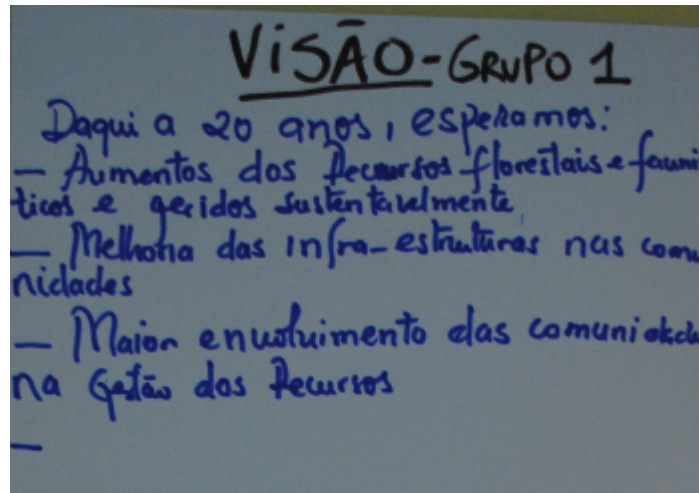 VISÃO - GRUPO 1
Daqui a 20 anos, esperamos:
— Aumentos dos Recursos florestais e fauni
ticos e geridos sustentavelmente
— Melhoria das infra-estruturas nas comu
nidades
— Maior envolvimento das comunidad
na Gestão dos Recursos
—